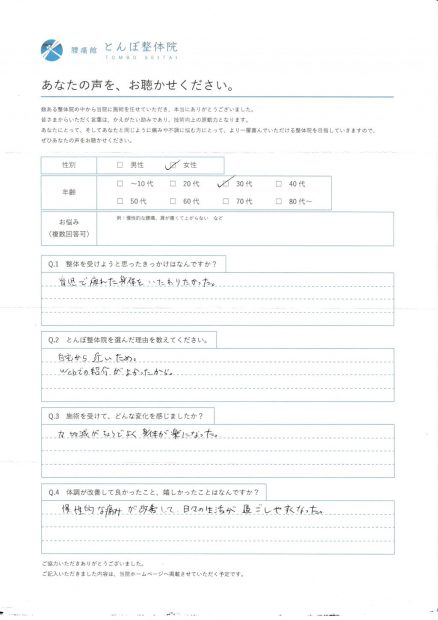 腰痛館 とんぼ整体院
TOMBO SEITAI
あなたの声を、お聴かせください。
数ある整体院の中から当院に施術を任せていただき、本当にありがとうございました。
皆さまからいただく言葉は、かえがたい励みであり、技術向上の原動力となります。
あなたにとって、そしてあなたと同じように痛みや不調に悩む方にとって、より一層喜んでいただける整体院を目指していきますので、
ぜひあなたの声をお聴かせください。
性別 □ 男性 □ 女性
年齢 □ 〜10代 □ 20代 □ 30代 □ 40代
□ 50代 □ 60代 □ 70代 □ 80代〜
お悩み
（複数回答可）
例：慢性的な腰痛、肩が痛くて上がらない など
Q.1 整体を受けようと思ったきっかけはなんですか？
育児で疲れた身体をいたわりたかった。
Q.2 とんぼ整体院を選んだ理由を教えてください。
自宅から近いため。
Webでの紹介がよかったから。
Q.3 施術を受けて、どんな変化を感じましたか？
力加減がちょうどよく身体が楽になった。
Q.4 体調が改善して良かったこと、嬉しかったことはなんですか？
慢性的な痛みが改善して、日々の生活が過ごしやすくなった。
ご協力いただきありがとうございました。
ご記入いただきました内容は、当院ホームページへ掲載させていただく予定です。